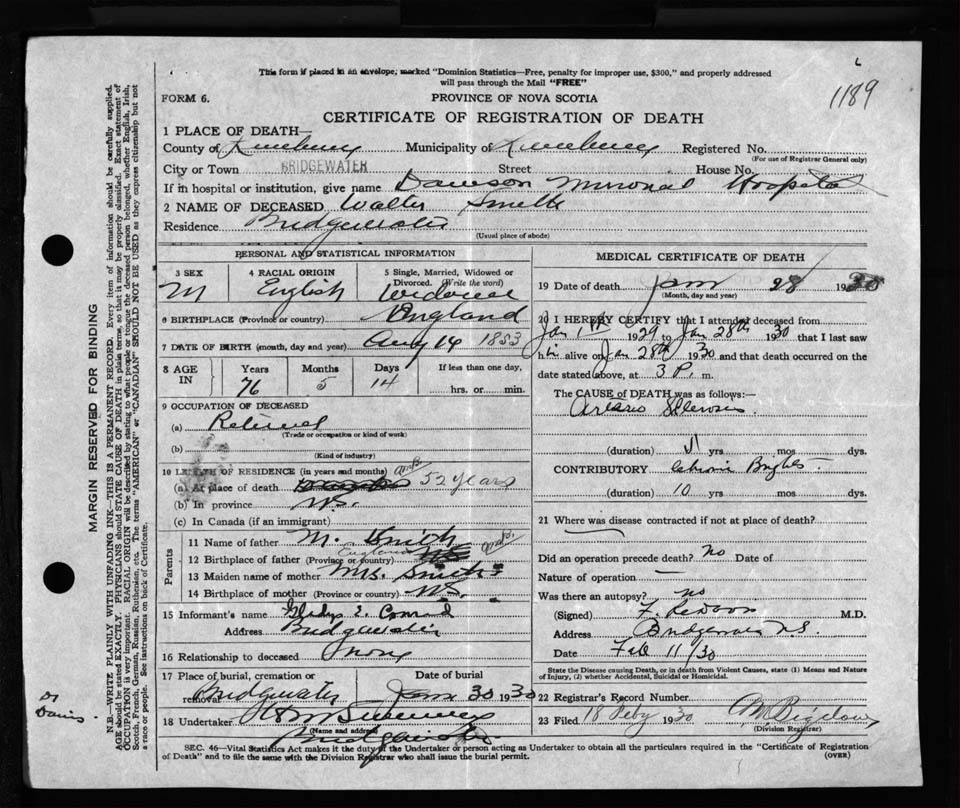 This form if placed in an envelope, marked "Dominion Statistics—Free, penalty for improper use, $300," and properly addressed
will pass through the Mail "FREE"
1189
FORM 6.
PROVINCE OF NOVA SCOTIA
CERTIFICATE OF REGISTRATION OF DEATH
1 PLACE OF DEATH—
County of Lunenburg Municipality of Lunenburg Registered No.
(For use of Registrar General only)
City or Town BRIDGEWATER Street House No.
If in hospital or institution, give name Dawson Memorial Hospital
2 NAME OF DECEASED Walter Smith
Residence Bridgewater
(Usual place of abode)
PERSONAL AND STATISTICAL INFORMATION
3 SEX 4 RACIAL ORIGIN 5 Single, Married, Widowed or
Divorced. (Write the word)
M English Widower
6 BIRTHPLACE (Province or country) England
7 DATE OF BIRTH (month, day and year) Aug 14 1853
8 AGE IN Years Months Days If less than one day,
76 5 14 hrs. or min.
9 OCCUPATION OF DECEASED
(a) Retired
(Trade or occupation or kind of work)
(b)
(Kind of industry)
10 LENGTH OF RESIDENCE (in years and months)
(a) At place of death 52 years
(b) In province
(c) In Canada (if an immigrant)
Parents
11 Name of father M. Smith
12 Birthplace of father (Province or country) England
13 Maiden name of mother Mrs. Smith
14 Birthplace of mother (Province or country)
15 Informant's name Gladys E. Conrad
Address Bridgewater
16 Relationship to deceased none
17 Place of burial, cremation or removal Date of burial
Bridgewater Jan 30 1930
18 Undertaker
(Name and address)
Bridgewater
MEDICAL CERTIFICATE OF DEATH
19 Date of death Jan 28 1930
(Month, day and year)
20 I HEREBY CERTIFY that I attended deceased from
Jan 1st 1929 to Jan 28th 1930 that I last saw
him alive on Jan 28th 1930 and that death occurred on
date stated above, at 3 P. m.
The CAUSE OF DEATH was as follows:
Arterio Sclerosis
(duration) yrs mos dys.
CONTRIBUTORY chronic Brights
(duration) 10 yrs mos dys.
21 Where was disease contracted if not at place of death?
Did an operation precede death? no Date of
Nature of operation —
Was there an autopsy? no
(Signed) M.D.
Address Bridgewater N.S.
Date Feb 11/30
State the Disease causing Death, or in death from Violent Causes, state (1) Means and Nature
of Injury, (2) whether Accidental, Suicidal or Homicidal.
22 Registrar's Record Number
23 Filed 18 Feby 1930
(Division Registrar)
SEC. 46—Vital Statistics Act makes it the duty of the Undertaker or person acting as Undertaker to obtain all the particulars required in the "Certificate of Registration
of Death" and to file the same with the Division Registrar who shall issue the burial permit.
(OVER)
MARGIN RESERVED FOR BINDING
N.B.—WRITE PLAINLY WITH UNFADING INK—THIS IS A PERMANENT RECORD. Every item of information should be carefully supplied.
AGE should be stated EXACTLY. PHYSICIANS should STATE CAUSE OF DEATH in plain terms, so that it may be properly classified. Exact statement of
OCCUPATION is very important. RACIAL ORIGIN will be described by stating to what people or tongue the deceased person belonged, whether English, Irish,
Scotch, French, German, Russian, Ruthenian, etc. The terms "AMERICAN" or "CANADIAN" SHOULD NOT BE USED as they express citizenship but not
a race or people. See instructions on back of Certificate.
Dr Davis.